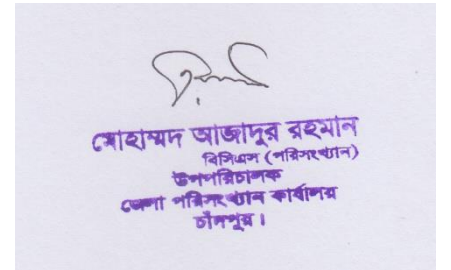 মোহাম্মদ আজাদুর রহমান
বিসিএস (পরিসংখ্যান)
উপপরিচালক
জেলা পরিসংখ্যান কার্যালয়
চাঁদপুর।